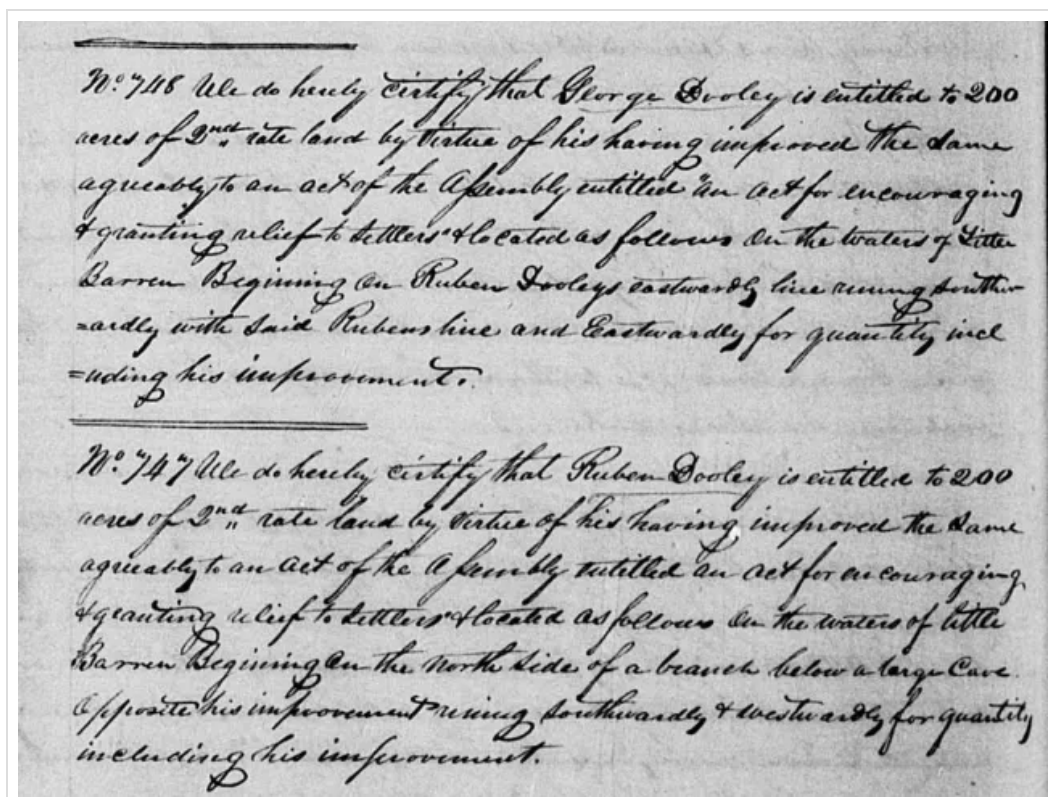 No. 748 We do hereby certify that George Dooley is entitled to 200
acres of 2nd,, rate land by Virtue of his having improved the Same
agreeably to an act of the Assembly entitled "an act for encouraging
& granting relief to Settlers" & located as follows On the waters of Little
Barren Begining On Ruben Dooleys eastwardly line runing Southw
=ardly with Said Rubens line and Eastwardly for quantity incl
=uding his improvement.
No. 747 We do hereby certify that Ruben Dooley is entitled to 200
acres of 2nd,, rate land by Virtue of his having improved the Same
agreeably to an act of the Assembly entitled an act for encouraging
& granting relief to Settlers" & located as follows On the waters of little
Barren Begining On the North Side of a branch below a large Cave
Opposite his improvement runing Southwardly & westwardly for quantity
including his improvement.